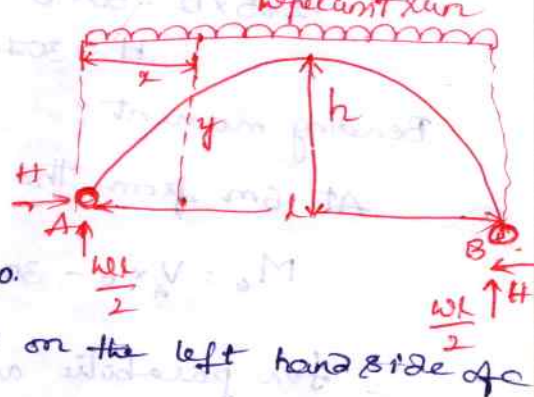 w per unit run
x
h
y
H
A
l
B
H
wl
2
wl
2
o.
on the left hand side of c